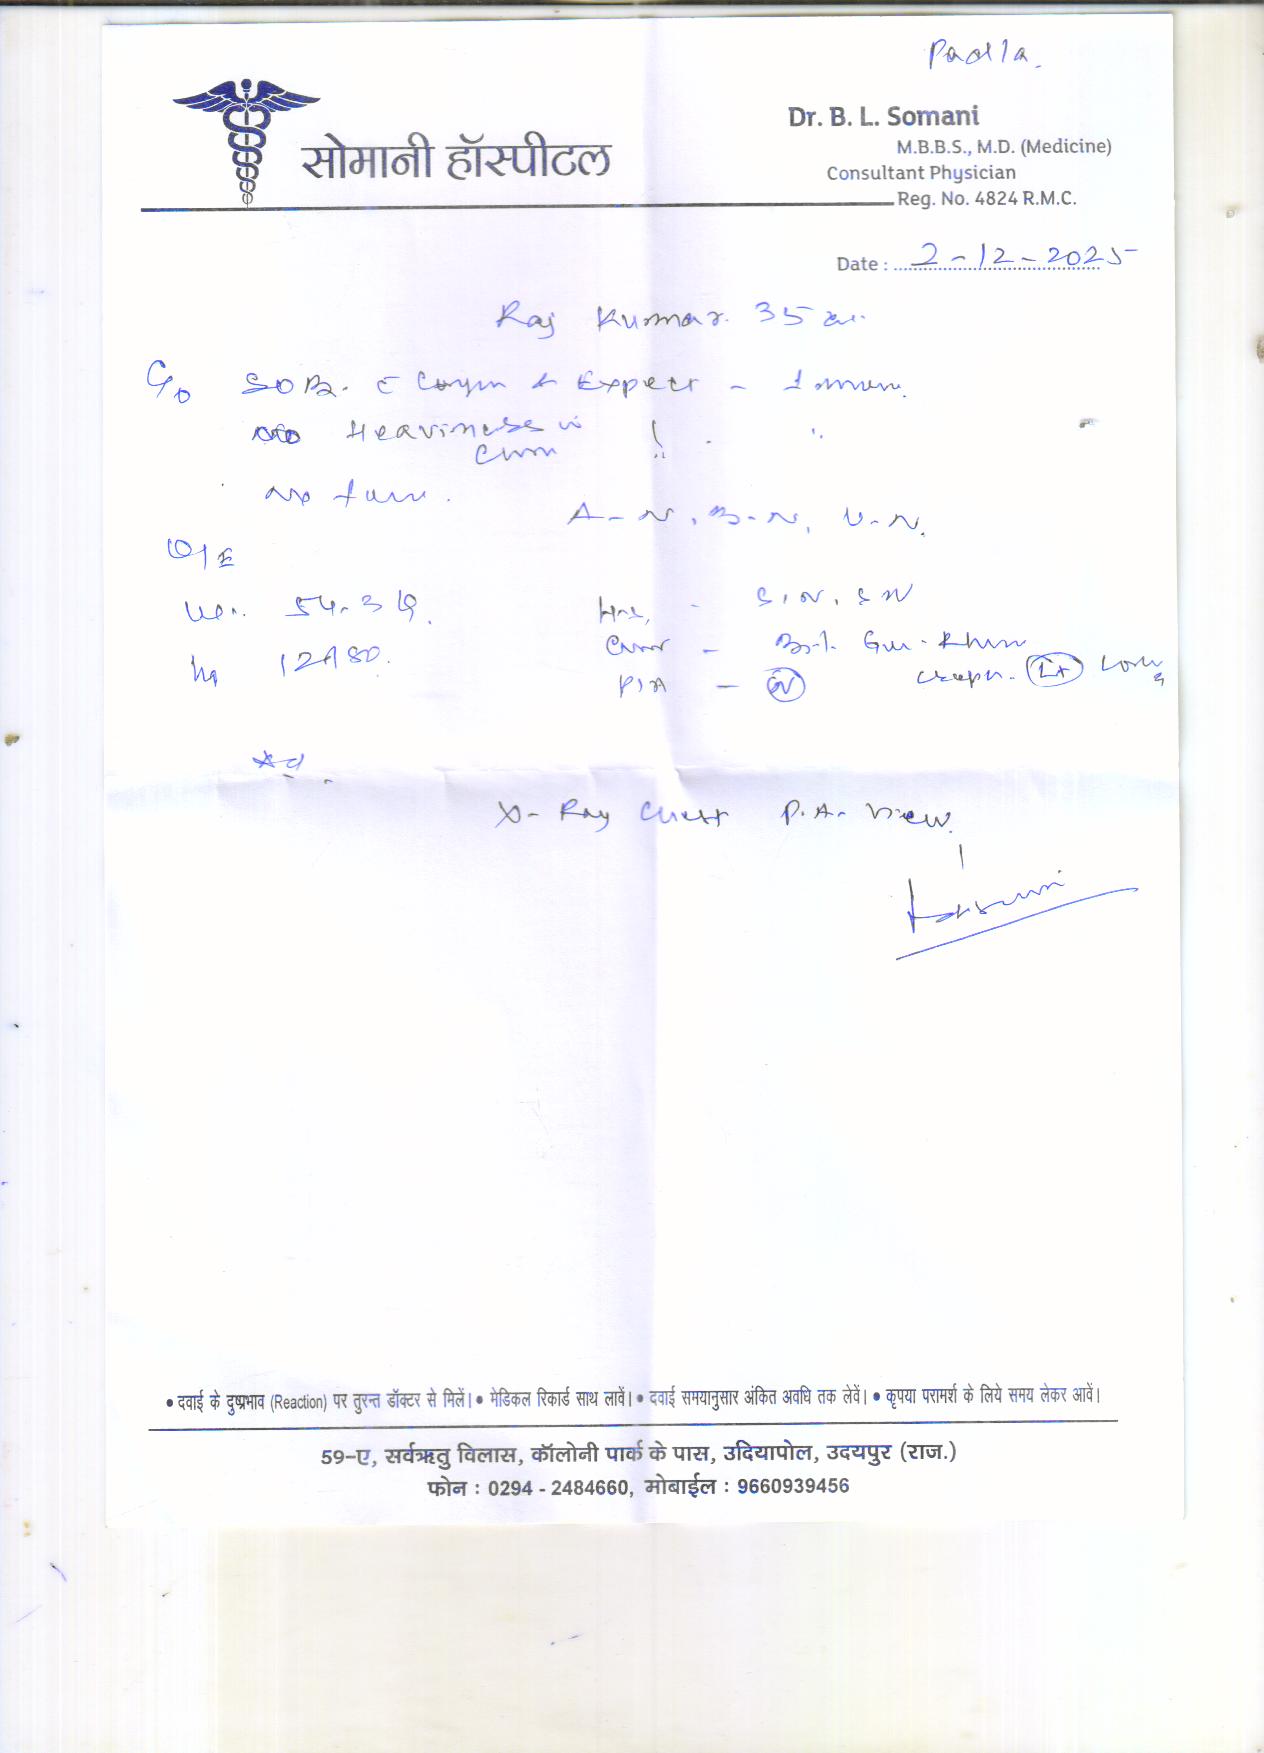 Padla.
सोमानी हॉस्पीटल
Dr. B. L. Somani
M.B.B.S., M.D. (Medicine)
Consultant Physician
Reg. No. 4824 R.M.C.
Date : 2-12-2025
Raj Kumar. 35
C/o SOB. c & Expect -
Heaviness in
No
A-N, B-N, U-N.
O/E
54.3 kg.
S1N, S2N
120/80.
P/A - N
Lt
Ad
X-Ray Chest P.A. View
• दवाई के दुष्प्रभाव (Reaction) पर तुरन्त डॉक्टर से मिलें। • मेडिकल रिकार्ड साथ लावें। • दवाई समयानुसार अंकित अवधि तक लेवें। • कृपया परामर्श के लिये समय लेकर आवें।
59-ए, सर्वऋतु विलास, कॉलोनी पार्क के पास, उदियापोल, उदयपुर (राज.)
फोन : 0294 - 2484660, मोबाईल : 9660939456